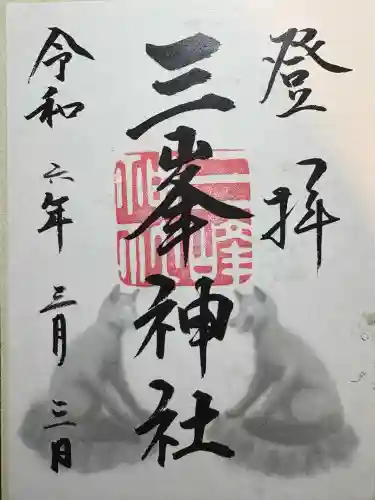 登拝
三峯神社
令和六年三月三日